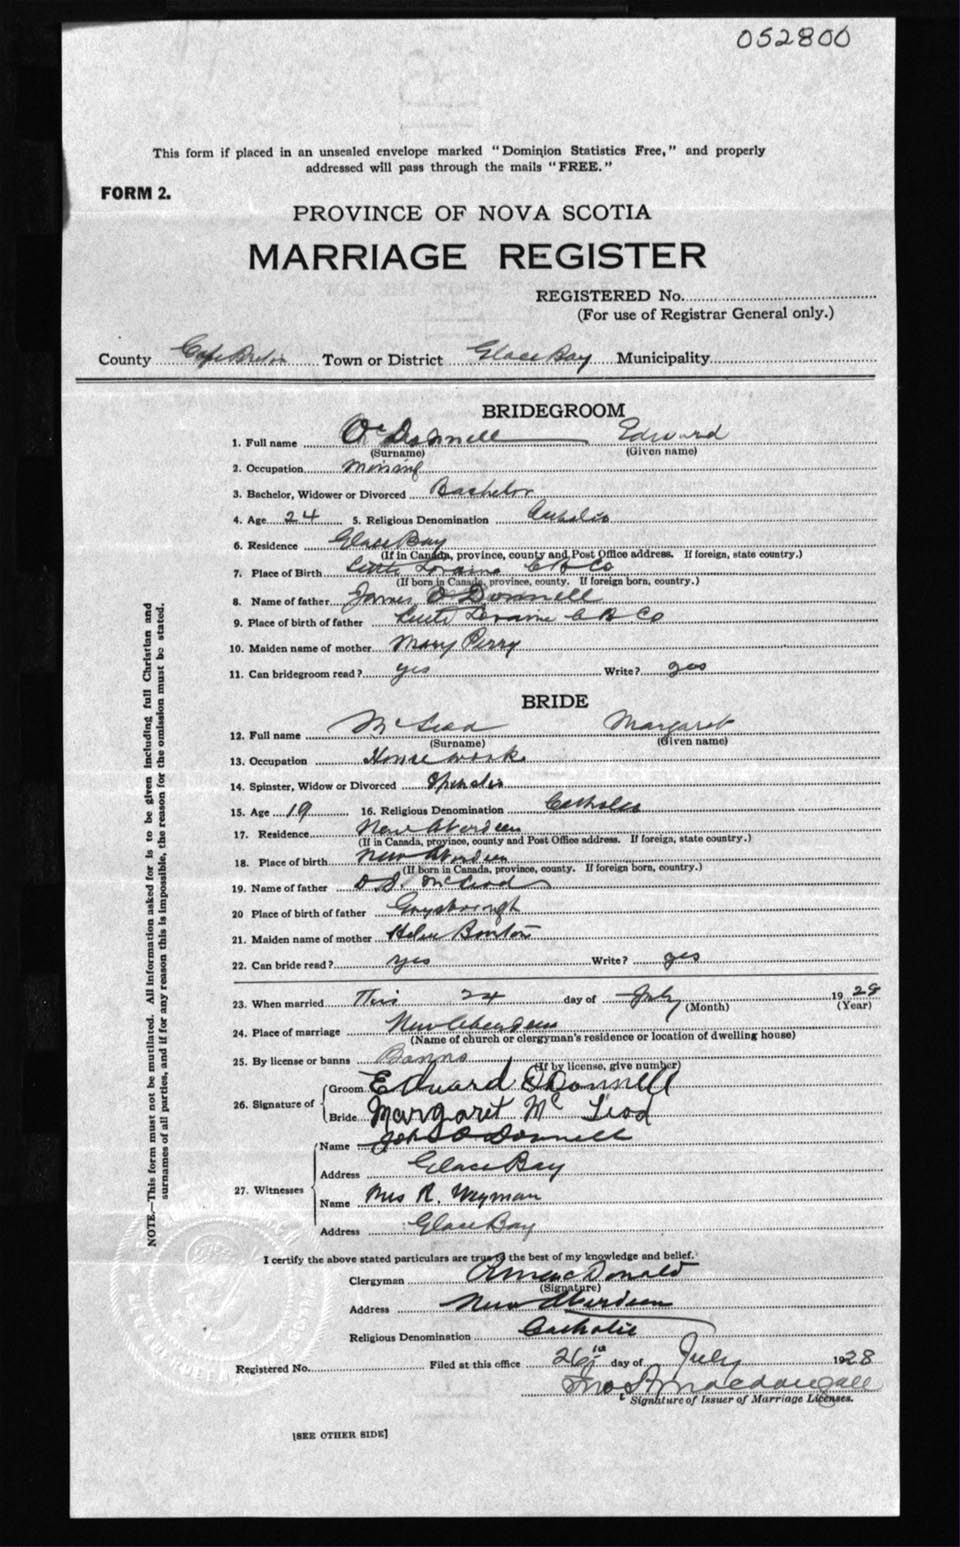 052800
This form if placed in an unsealed envelope marked "Dominion Statistics Free," and properly
addressed will pass through the mails "FREE."
FORM 2.
PROVINCE OF NOVA SCOTIA
MARRIAGE REGISTER
REGISTERED No.
(For use of Registrar General only.)
County Cape Breton Town or District Glace Bay Municipality
BRIDEGROOM
1. Full name O'Donnell Edward
(Surname) (Given name)
2. Occupation Mining
3. Bachelor, Widower or Divorced Bachelor
4. Age 24 5. Religious Denomination Catholic
6. Residence Glace Bay
(If in Canada, province, county and Post Office address. If foreign, state country.)
7. Place of Birth Little Loraine C B Co
(If born in Canada, province, county. If foreign born, country.)
8. Name of father James O Donnell
9. Place of birth of father Little Loraine C B Co
10. Maiden name of mother Mary Perry
11. Can bridegroom read? yes Write? yes
BRIDE
12. Full name McLeod Margaret
(Surname) (Given name)
13. Occupation House work
14. Spinster, Widow or Divorced Spinster
15. Age 19 16. Religious Denomination Catholic
17. Residence New Aberdeen
(If in Canada, province, county and Post Office address. If foreign, state country.)
18. Place of birth New Aberdeen
(If born in Canada, province, county. If foreign born, country.)
19. Name of father D D McLeod
20 Place of birth of father Guysborough
21. Maiden name of mother
22. Can bride read? yes Write? yes
23. When married This 24 day of July 1928
(Month) (Year)
24. Place of marriage New Aberdeen
(Name of church or clergyman's residence or location of dwelling house)
25. By license or banns Banns
(If by license, give number)
26. Signature of
Groom Edward O'Donnell
Bride Margaret Mc Leod
27. Witnesses
Name John O Donnell
Address Glace Bay
Name Mrs R. Weyman
Address Glace Bay
I certify the above stated particulars are true to the best of my knowledge and belief.
Clergyman MacDonald
(Signature)
Address New Aberdeen
Religious Denomination Catholic
Registered No. Filed at this office 26th day of July 1928
Signature of Issuer of Marriage Licenses.
[SEE OTHER SIDE]
NOTE.—This form must not be mutilated. All information asked for is to be given including full Christian and
surnames of all parties, and if for any reason this is impossible, the reason for the omission must be stated.